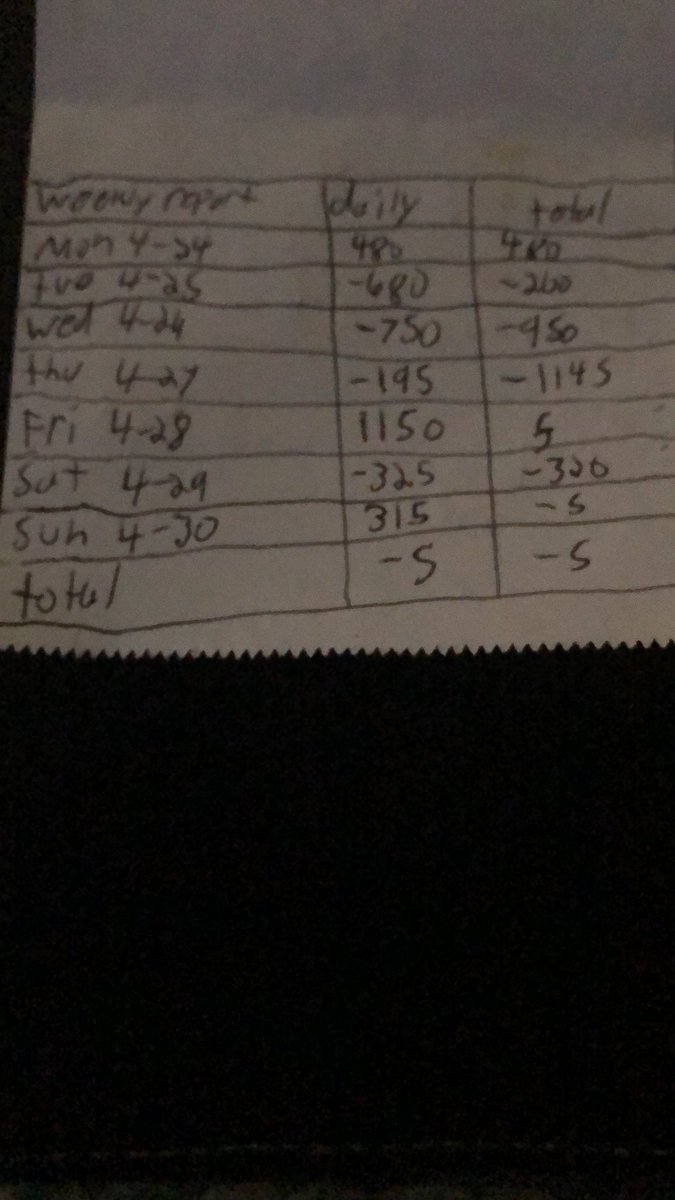 Weekly report daily total
Mon 4-24 480 480
tue 4-25 -680 -200
wed 4-26 -750 -950
thu 4-27 -195 -1145
Fri 4-28 1150 5
Sat 4-29 -325 -320
Sun 4-30 315 -5
total -5 -5